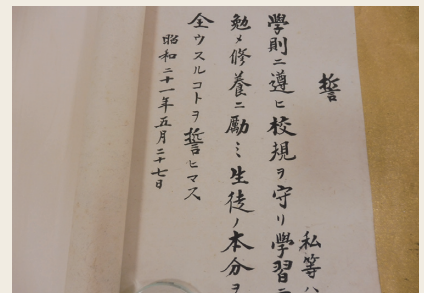 誓
私等ハ
學則ニ遵ヒ校規ヲ守リ學習ニ
勉メ修養ニ勵ミ生徒ノ本分ヲ
全ウスルコトヲ誓ヒマス
昭和二十一年五月二十七日